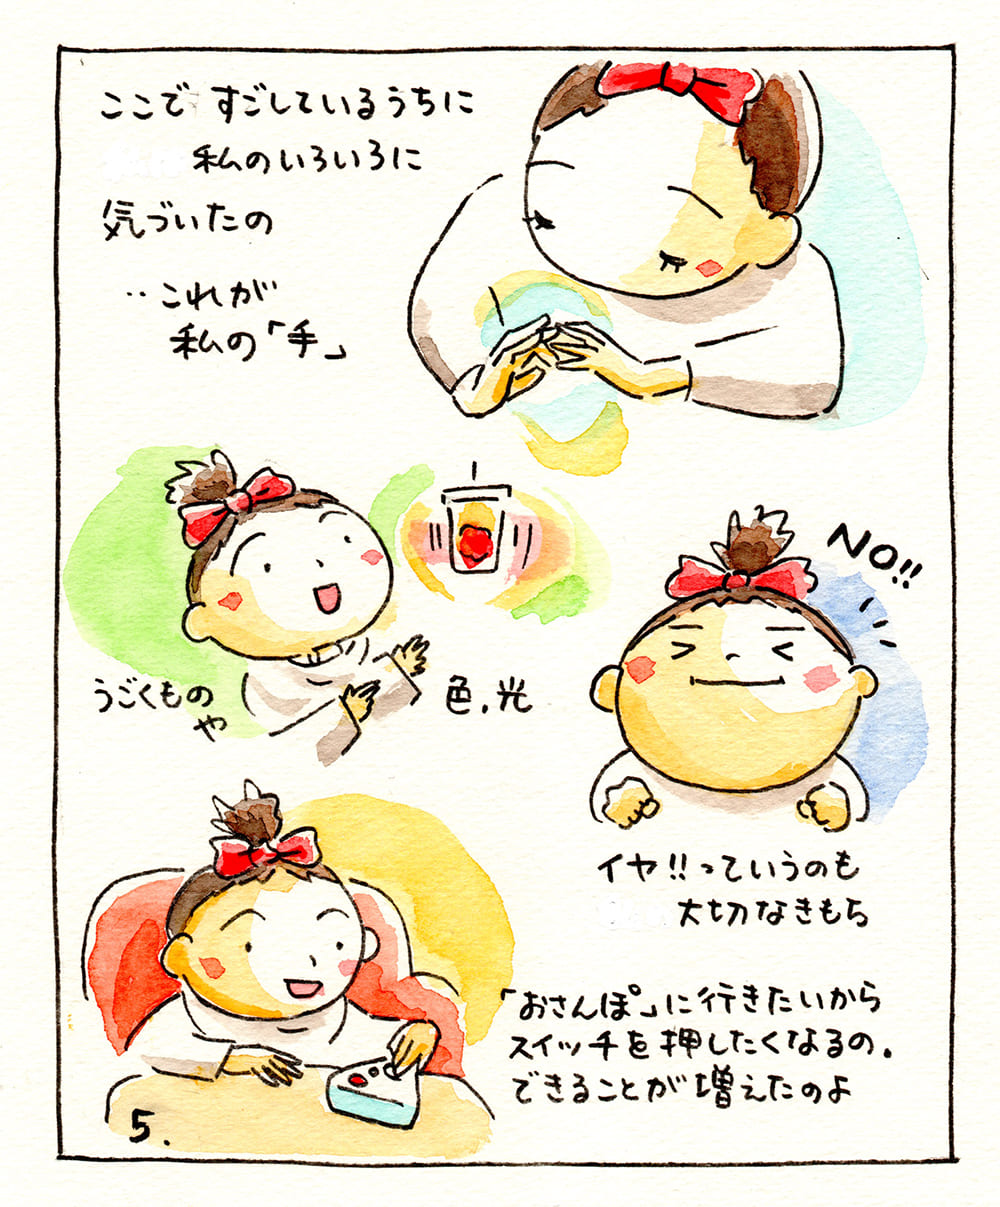 ここで すごしているうちに
私のいろいろに
気づいたの
‥これが
私の「手」
うごくもの
や
色、光
NO!!
イヤ!!っていうのも
大切なきもち
「おさんぽ」に行きたいから
スイッチを押したくなるの.
できることが増えたのよ
5.